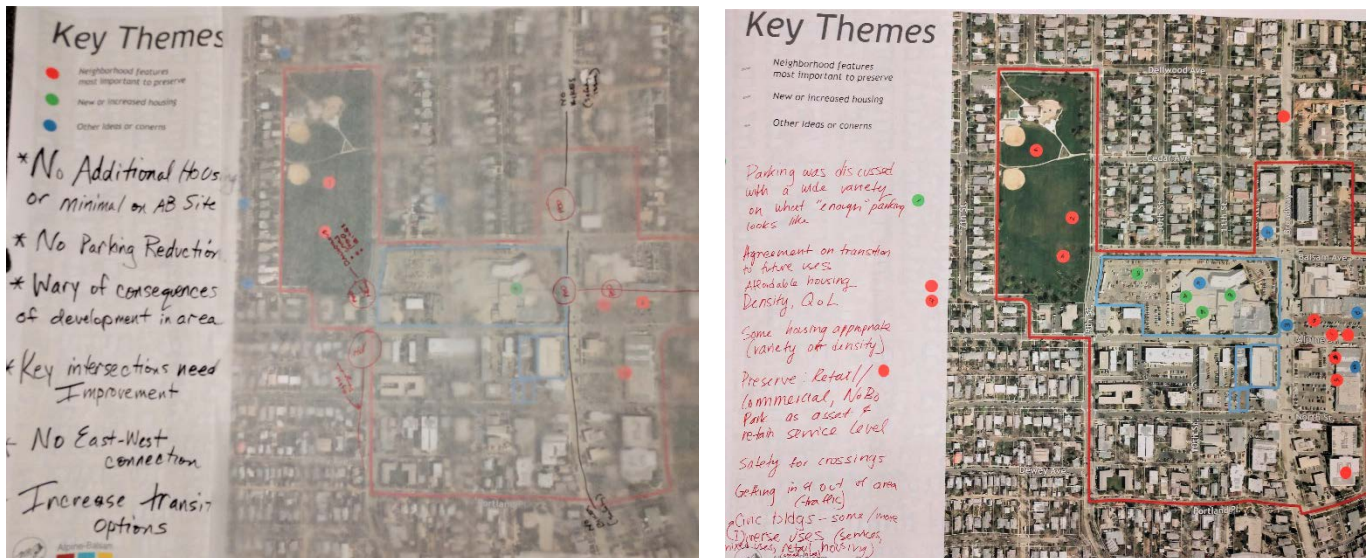 Key Themes
Neighborhood features
most important to preserve
New or increased housing
Other ideas or conerns
* No Additional Hous
or minimal on AB Site
* No Parking Reduction
* Wary of consequences
of development in area
* Key intersections need
Improvement
No East-West
connection
Increase transit
Options
Alpine-Balsam
Key Themes
Neighborhood features
most important to preserve
New or increased housing
Other ideas or conerns
Parking was discussed
with a wide variety
on what "enough" parking
looks like
Agreement on transition
to future uses
Affordable housing
Density, QoL
Some housing appropriate
(variety on density)
Preserve: Retail/
Commercial, NoBo
Park as asset &
retain service level
Safety for crossings
Getting in & out of area
(traffic)
Civic bldgs - some/more
Diverse uses (services,
retail, housing)
Dellwood Ave
Cedar Ave
Balsam Ave
North St
Dewey Ave
Portland Pl